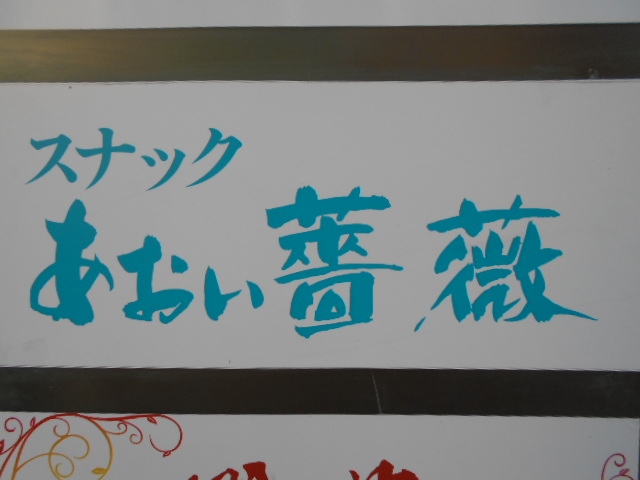 スナック
あおい薔薇